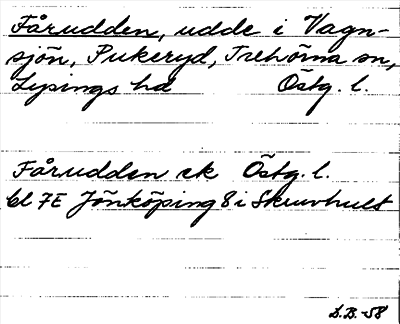 Fårudden, udde i Vagn-
sjön, Pukeryd, Trehörna sn,
Lysings hd Östg. l.
Fårudden ek Östg. l.
bl 7E Jönköping 8 i Skruvhult
L.B. -58